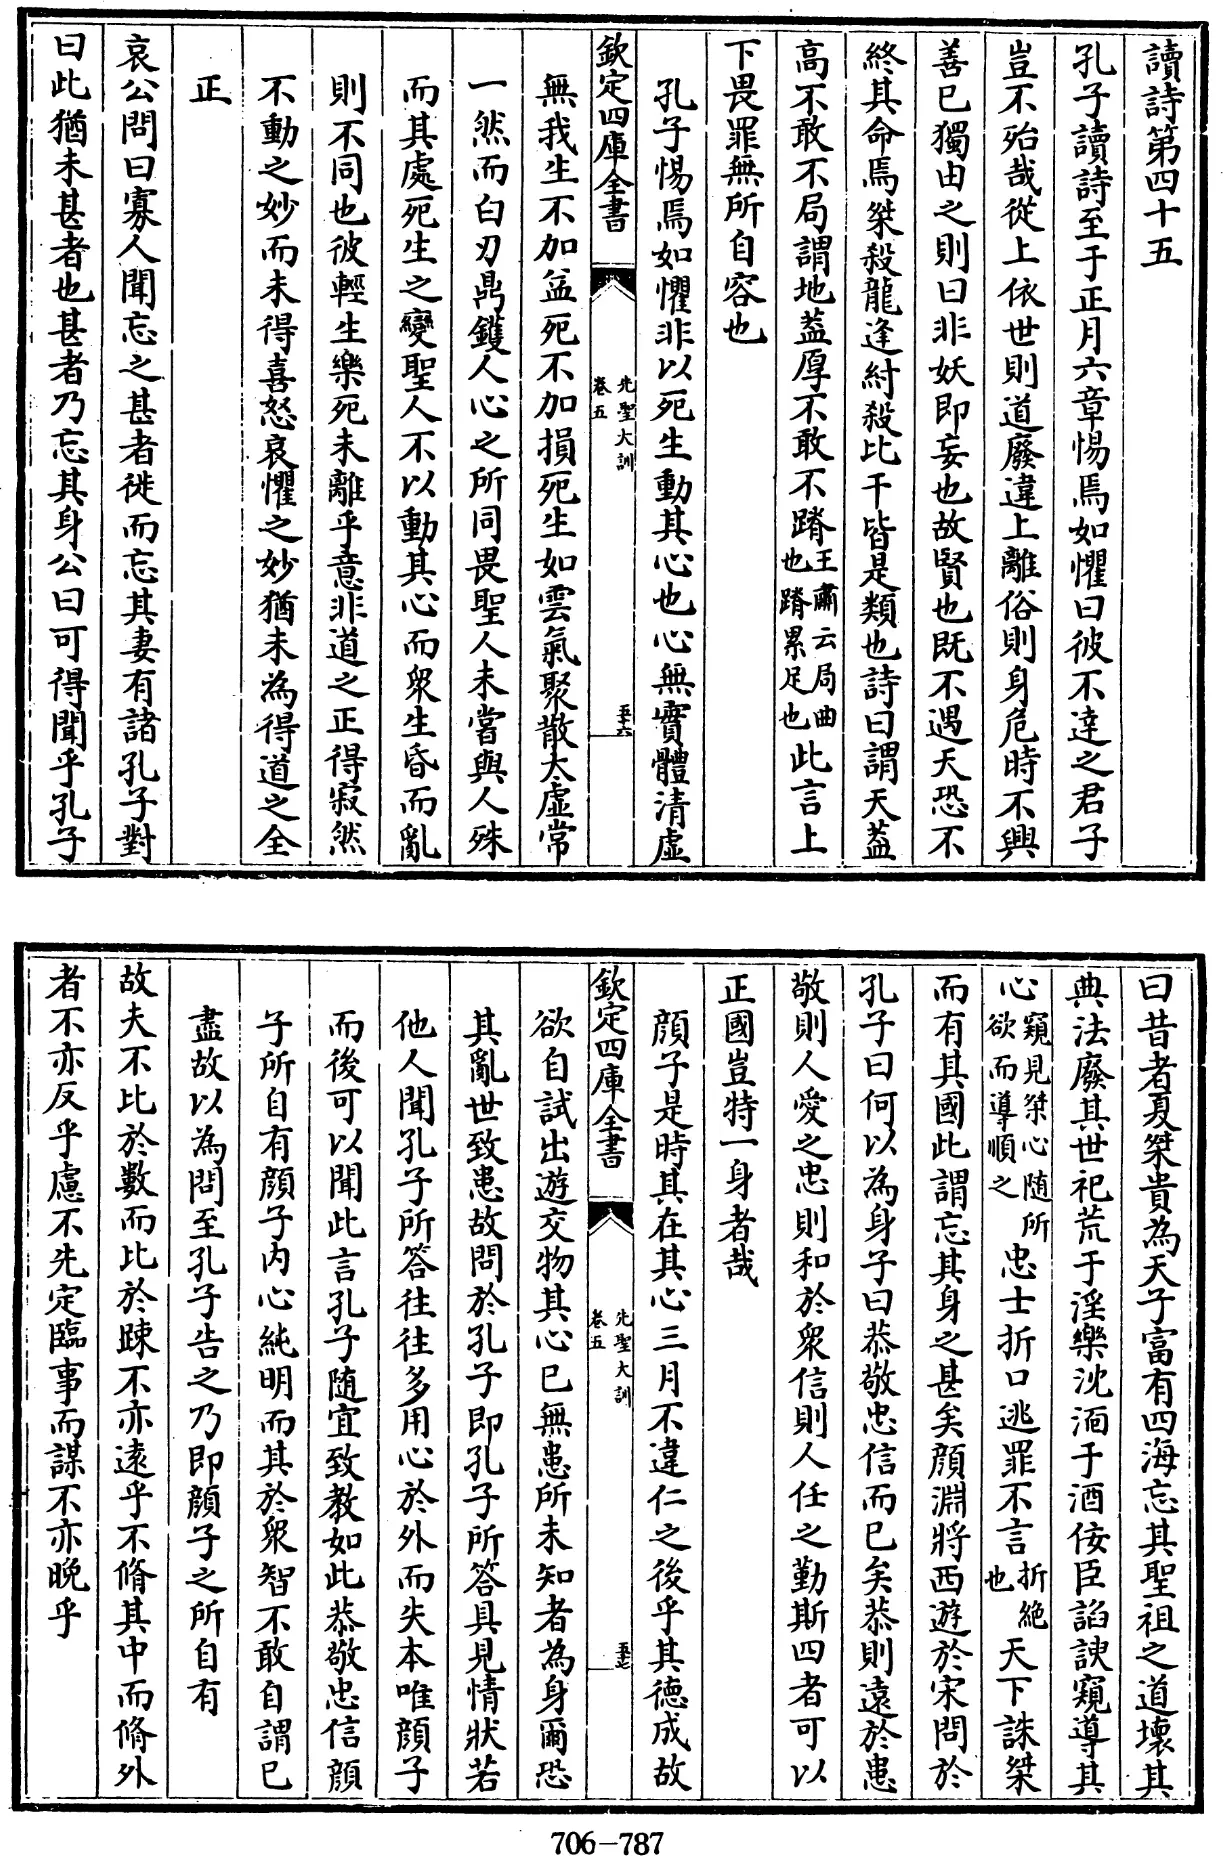 讀詩第四十五
孔子讀詩至于正月六章惕焉如懼曰彼不達之君子
豈不殆哉從上依世則道廢違上離俗則身危時不興
善已獨由之則曰非妖即妄也故賢也既不遇天恐不
終其命焉桀殺龍逢紂殺比干皆是類也詩曰謂天葢
高不敢不局謂地葢厚不敢不蹐王肅云局曲也蹐累足也此言上
下畏罪無所自容也
孔子惕焉如懼非以死生動其心也心無實體清虛
欽定四庫全書
先聖大訓
卷五
五十六
無我生不加益死不加損死生如雲氣聚散太虛常
一然而白刃鼎鑊人心之所同畏聖人未嘗與人殊
而其處死生之變聖人不以動其心而衆生昏而亂
則不同也彼輕生樂死未離乎意非道之正得寂然
不動之妙而未得喜怒哀懼之妙猶未為得道之全
正
哀公問曰寡人聞忘之甚者徙而忘其妻有諸孔子對
曰此猶未甚者也甚者乃忘其身公曰可得聞乎孔子
曰昔者夏桀貴為天子富有四海忘其聖祖之道壞其
典法廢其世祀荒于淫樂沈湎于酒佞臣諂諛窺導其
心窺見桀心随所欲而導順之忠士折口逃罪不言折絶也天下誅桀
而有其國此謂忘其身之甚矣顔淵將西遊於宋問於
孔子曰何以為身子曰恭敬忠信而已矣恭則遠於患
敬則人愛之忠則和於衆信則人任之勤斯四者可以
正國豈特一身者哉
顔子是時其在其心三月不違仁之後乎其德成故
欽定四庫全書
先聖大訓
卷五
五十七
欲自試出遊交物其心已無患所未知者為身爾恐
其亂世致患故問於孔子即孔子所答具見情狀若
他人聞孔子所答往往多用心於外而失本唯顔子
而後可以聞此言孔子隨宜致教如此恭敬忠信顔
子所自有顔子内心純明而其於衆智不敢自謂已
盡故以為問至孔子告之乃即顔子之所自有
故夫不比於數而比於踈不亦遠乎不脩其中而脩外
者不亦反乎慮不先定臨事而謀不亦晚乎
706-787